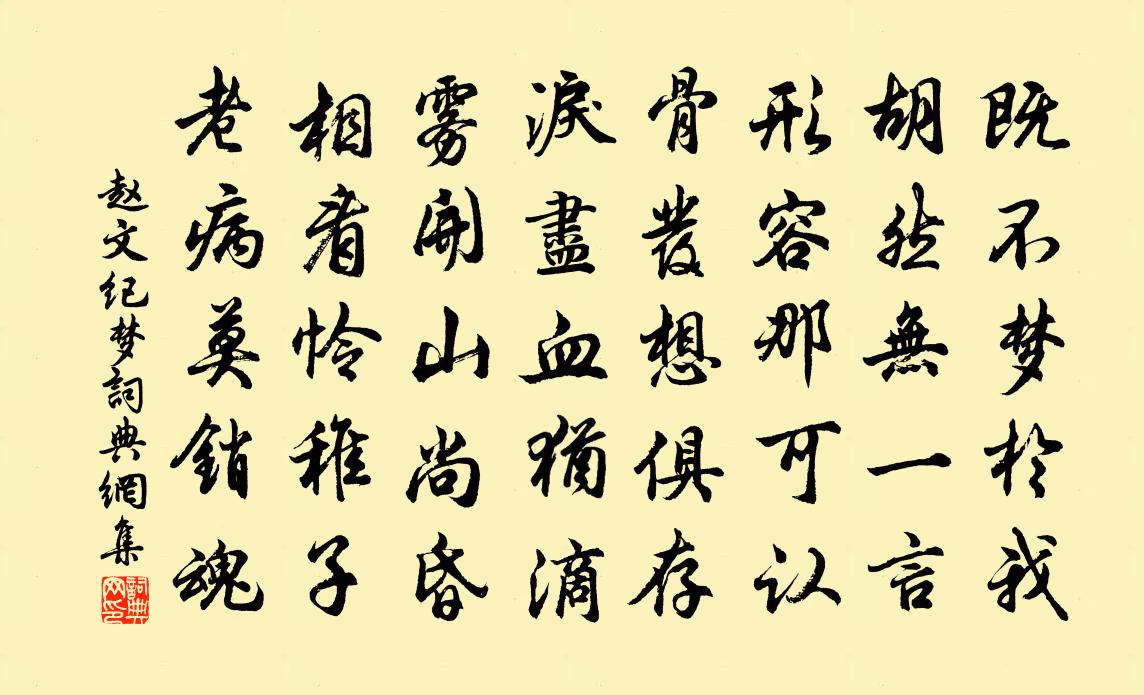 既不梦於我
胡然無一言
形容那可认
骨发想俱存
淚盡血猶滴
雾開山尚昏
相看怜稚子
老病莫銷魂
赵文纪梦詞典網集
詞典网印